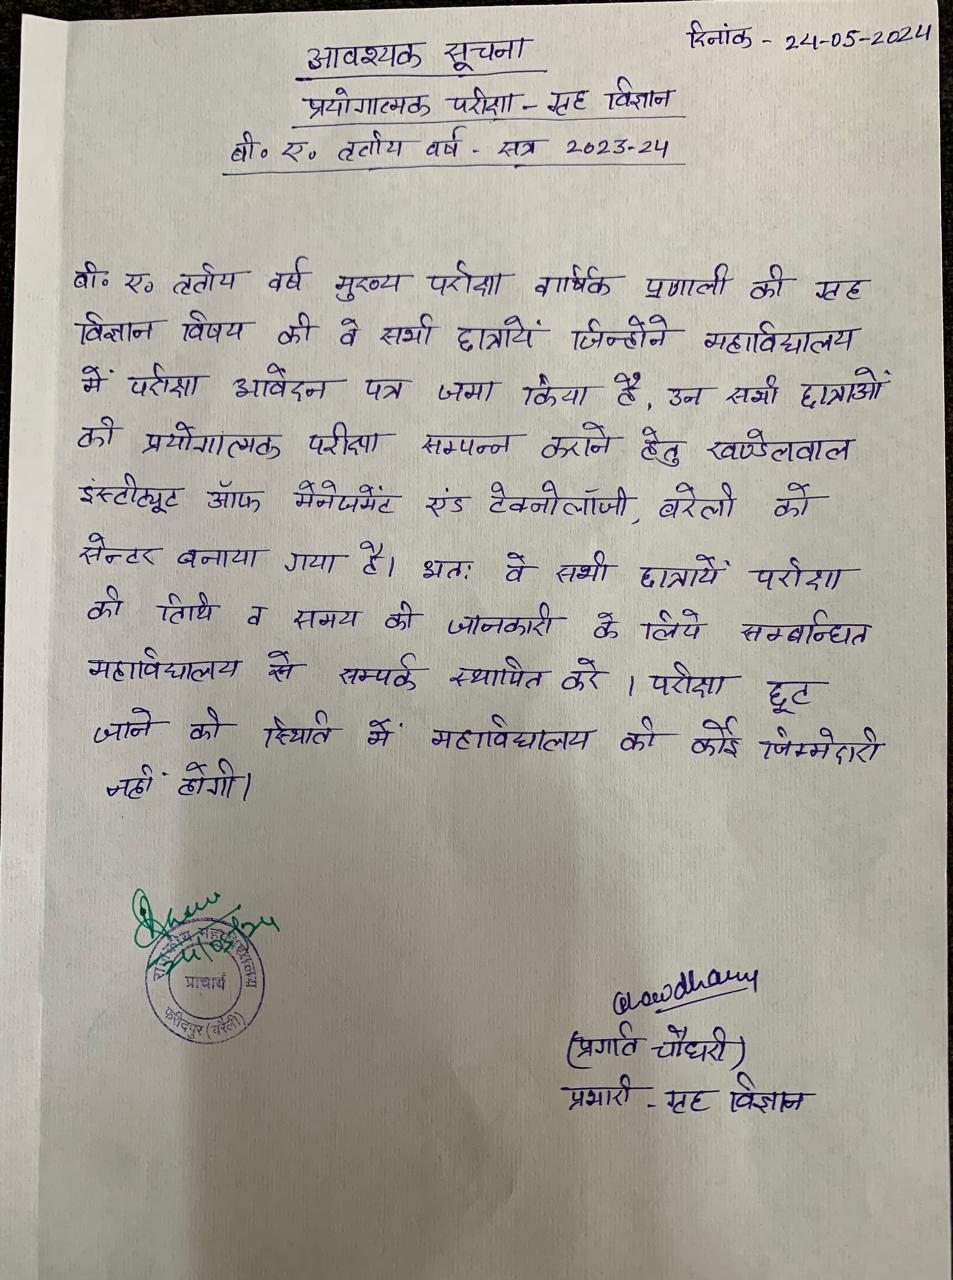 दिनांक - 24-05-2024
आवश्यक सूचना
प्रयोगात्मक परीक्षा - गृह विज्ञान
बी० ए० तृतीय वर्ष - सत्र 2023-24
बी० ए० तृतीय वर्ष मुख्य परीक्षा वार्षिक प्रणाली की गृह
विज्ञान विषय की वे सभी छात्रायें जिन्होंने महाविद्यालय
में परीक्षा आवेदन पत्र जमा किया है, उन सभी छात्राओं
की प्रयोगात्मक परीक्षा सम्पन्न कराने हेतु खण्डेलवाल
इंस्टीट्यूट ऑफ मैनेजमेंट एंड टेक्नोलॉजी, बरेली को
सेन्टर बनाया गया है। अतः वे सभी छात्रायें परीक्षा
की तिथि व समय की जानकारी के लिये सम्बन्धित
महाविद्यालय से सम्पर्क स्थापित करे। परीक्षा छूट
जाने की स्थिति में महाविद्यालय की कोई जिम्मेदारी
नहीं होगी।
24/05/24
राजकीय महाविद्यालय
प्राचार्य
फरीदपुर (बरेली)
Chowdhary
(प्रगति चौधरी)
प्रभारी - गृह विज्ञान